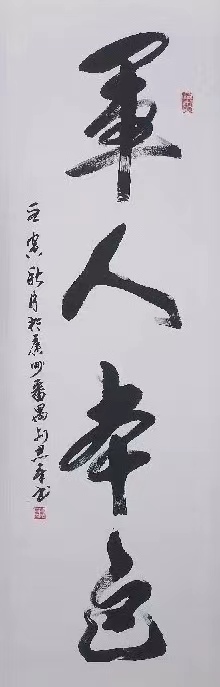 軍人本色
壬寅秋月於廣州番禺